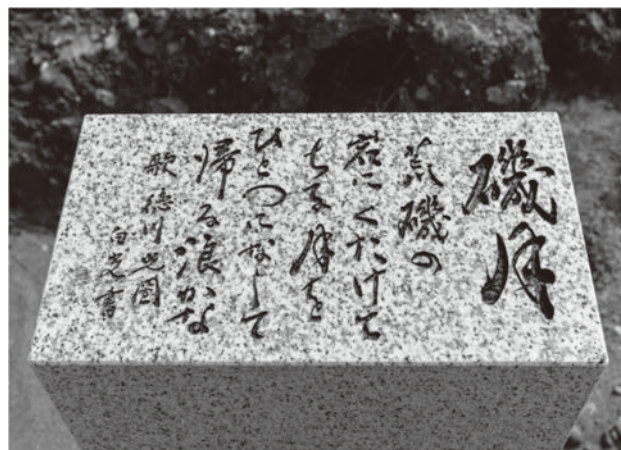 磯月
荒磯の
岩にくたけて
ちる月を
ひとつになして
帰る浪かな
歌 徳川光圀
書